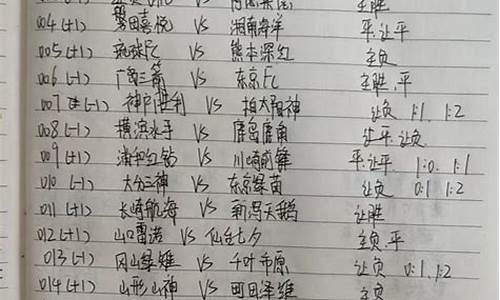 004 (+1) 磐田喜悦 VS 湘南海洋 平.让平
005 (+1) 琉球FC VS 熊本深红 主负
006 (-1) 广岛三箭 VS 东京FC 主胜.平
007 (-1) 神户胜利 VS 柏太阳神 让负 1:1. 1:2
008 (-1) 横滨水手 VS 鹿岛鹿角 让平.让负
009 (+1) 浦和红钻 VS 川崎前锋 平.让平 1:0. 1:1
010 (-1) 大分三神 VS 东京绿茵 让负 0:1 1:2
011 (+1) 长崎航海 VS 新潟天鹅 让胜
012 (+1) 山口雷诺 VS 仙台七夕 主负.平
013 (-1) 冈山绿雉 VS 千叶市原 让负 0:1, 1:2
014 (+1) 山形山神 VS 町田泽维 主负